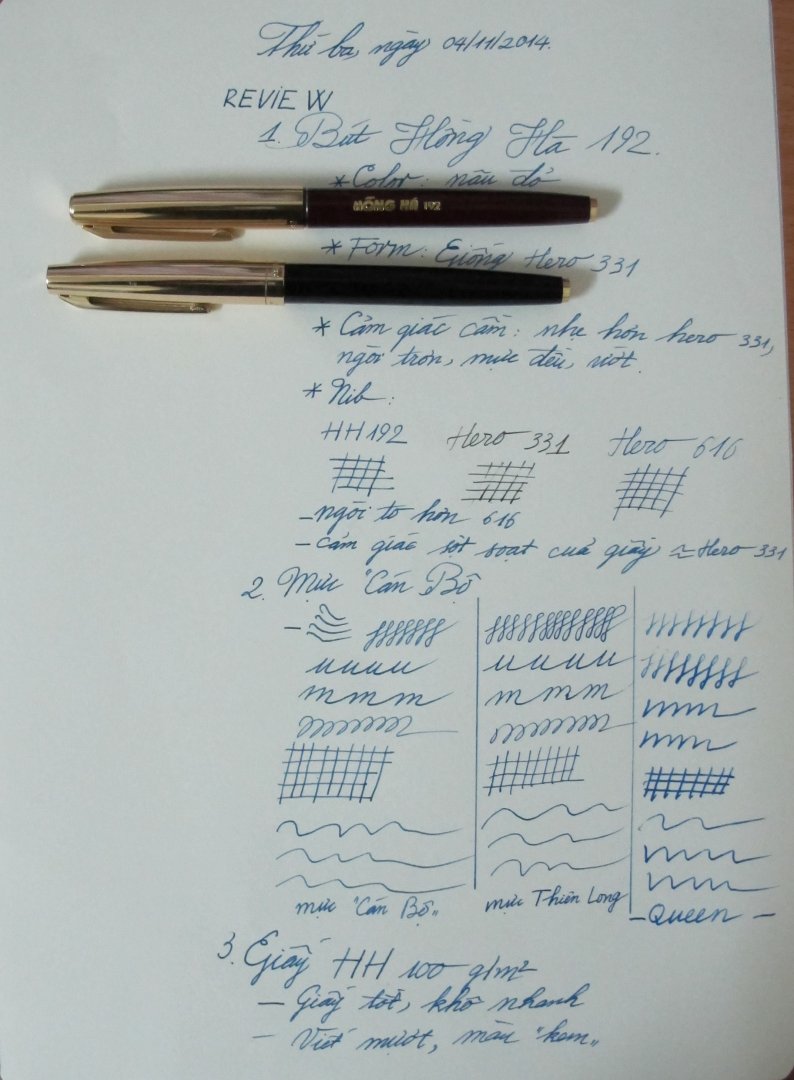 Thứ ba, ngày 04/11/2014.
REVIEW
1. Bút Hồng Hà 192.
* Color: nâu đỏ
HỒNG HÀ 192
* Form: Giống Hero 331
* Cảm giác cầm: nhẹ hơn hero 331,
ngòi trơn, mực đều, ướt.
* Nib:
HH192 Hero 331 Hero 616
- ngòi to hơn 616
- cảm giác sột soạt của giấy ≈ Hero 331
2. Mực "Cán Bộ
mực "Cán Bộ„ mực Thiên Long - Queen -
3. Giấy HH 100 g/m²
- Giấy tốt, khô nhanh
- Viết mượt, màu "kem„